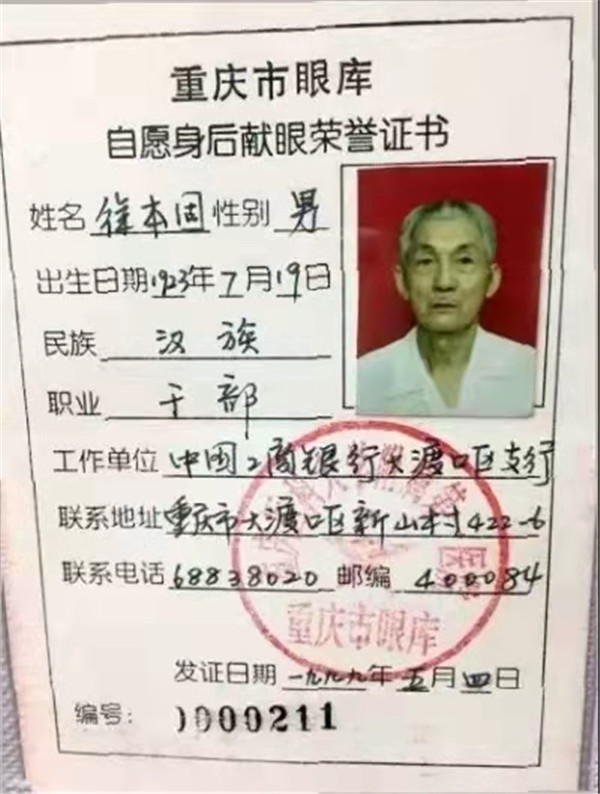 重庆市眼库
自愿身后献眼荣誉证书
姓名 徐本固 性别 男
出生日期 1923年7月19日
民族 汉族
职业 干部
工作单位 中国工商银行大渡口区支行
联系地址 重庆市大渡口区新山村422-6
联系电话 68838020 邮编 400084
重庆市眼库
发证日期 一九九九年五月四日
编号: 0000211